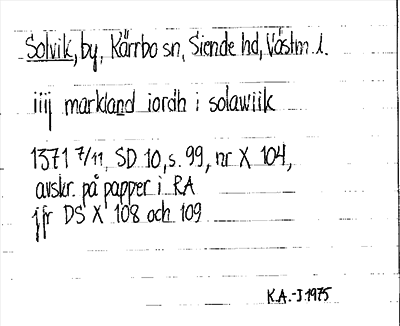 Solvik, by, Kärrbo sn, Siende hd, Västm. l.
iiij markland iordh i solawiik
1371 7/11, SD 10, s. 99, nr X 104,
avskr. på papper i RA
jfr DS X 108 och 109
K.A.-J. 1975